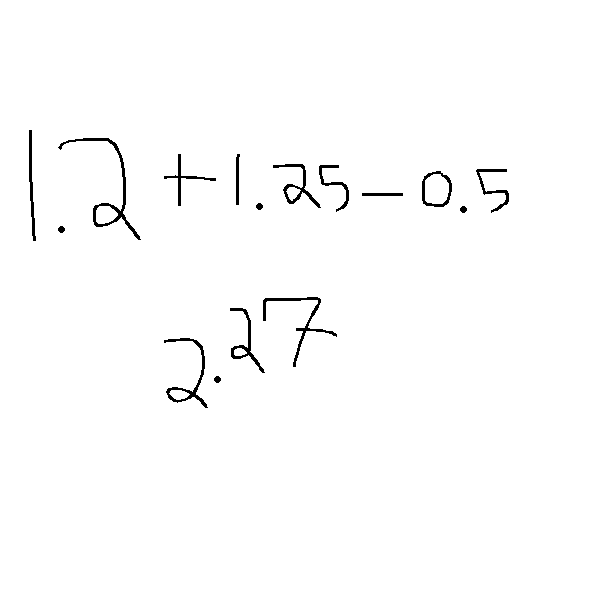 1.2 + 1.25 - 0.5
2.27